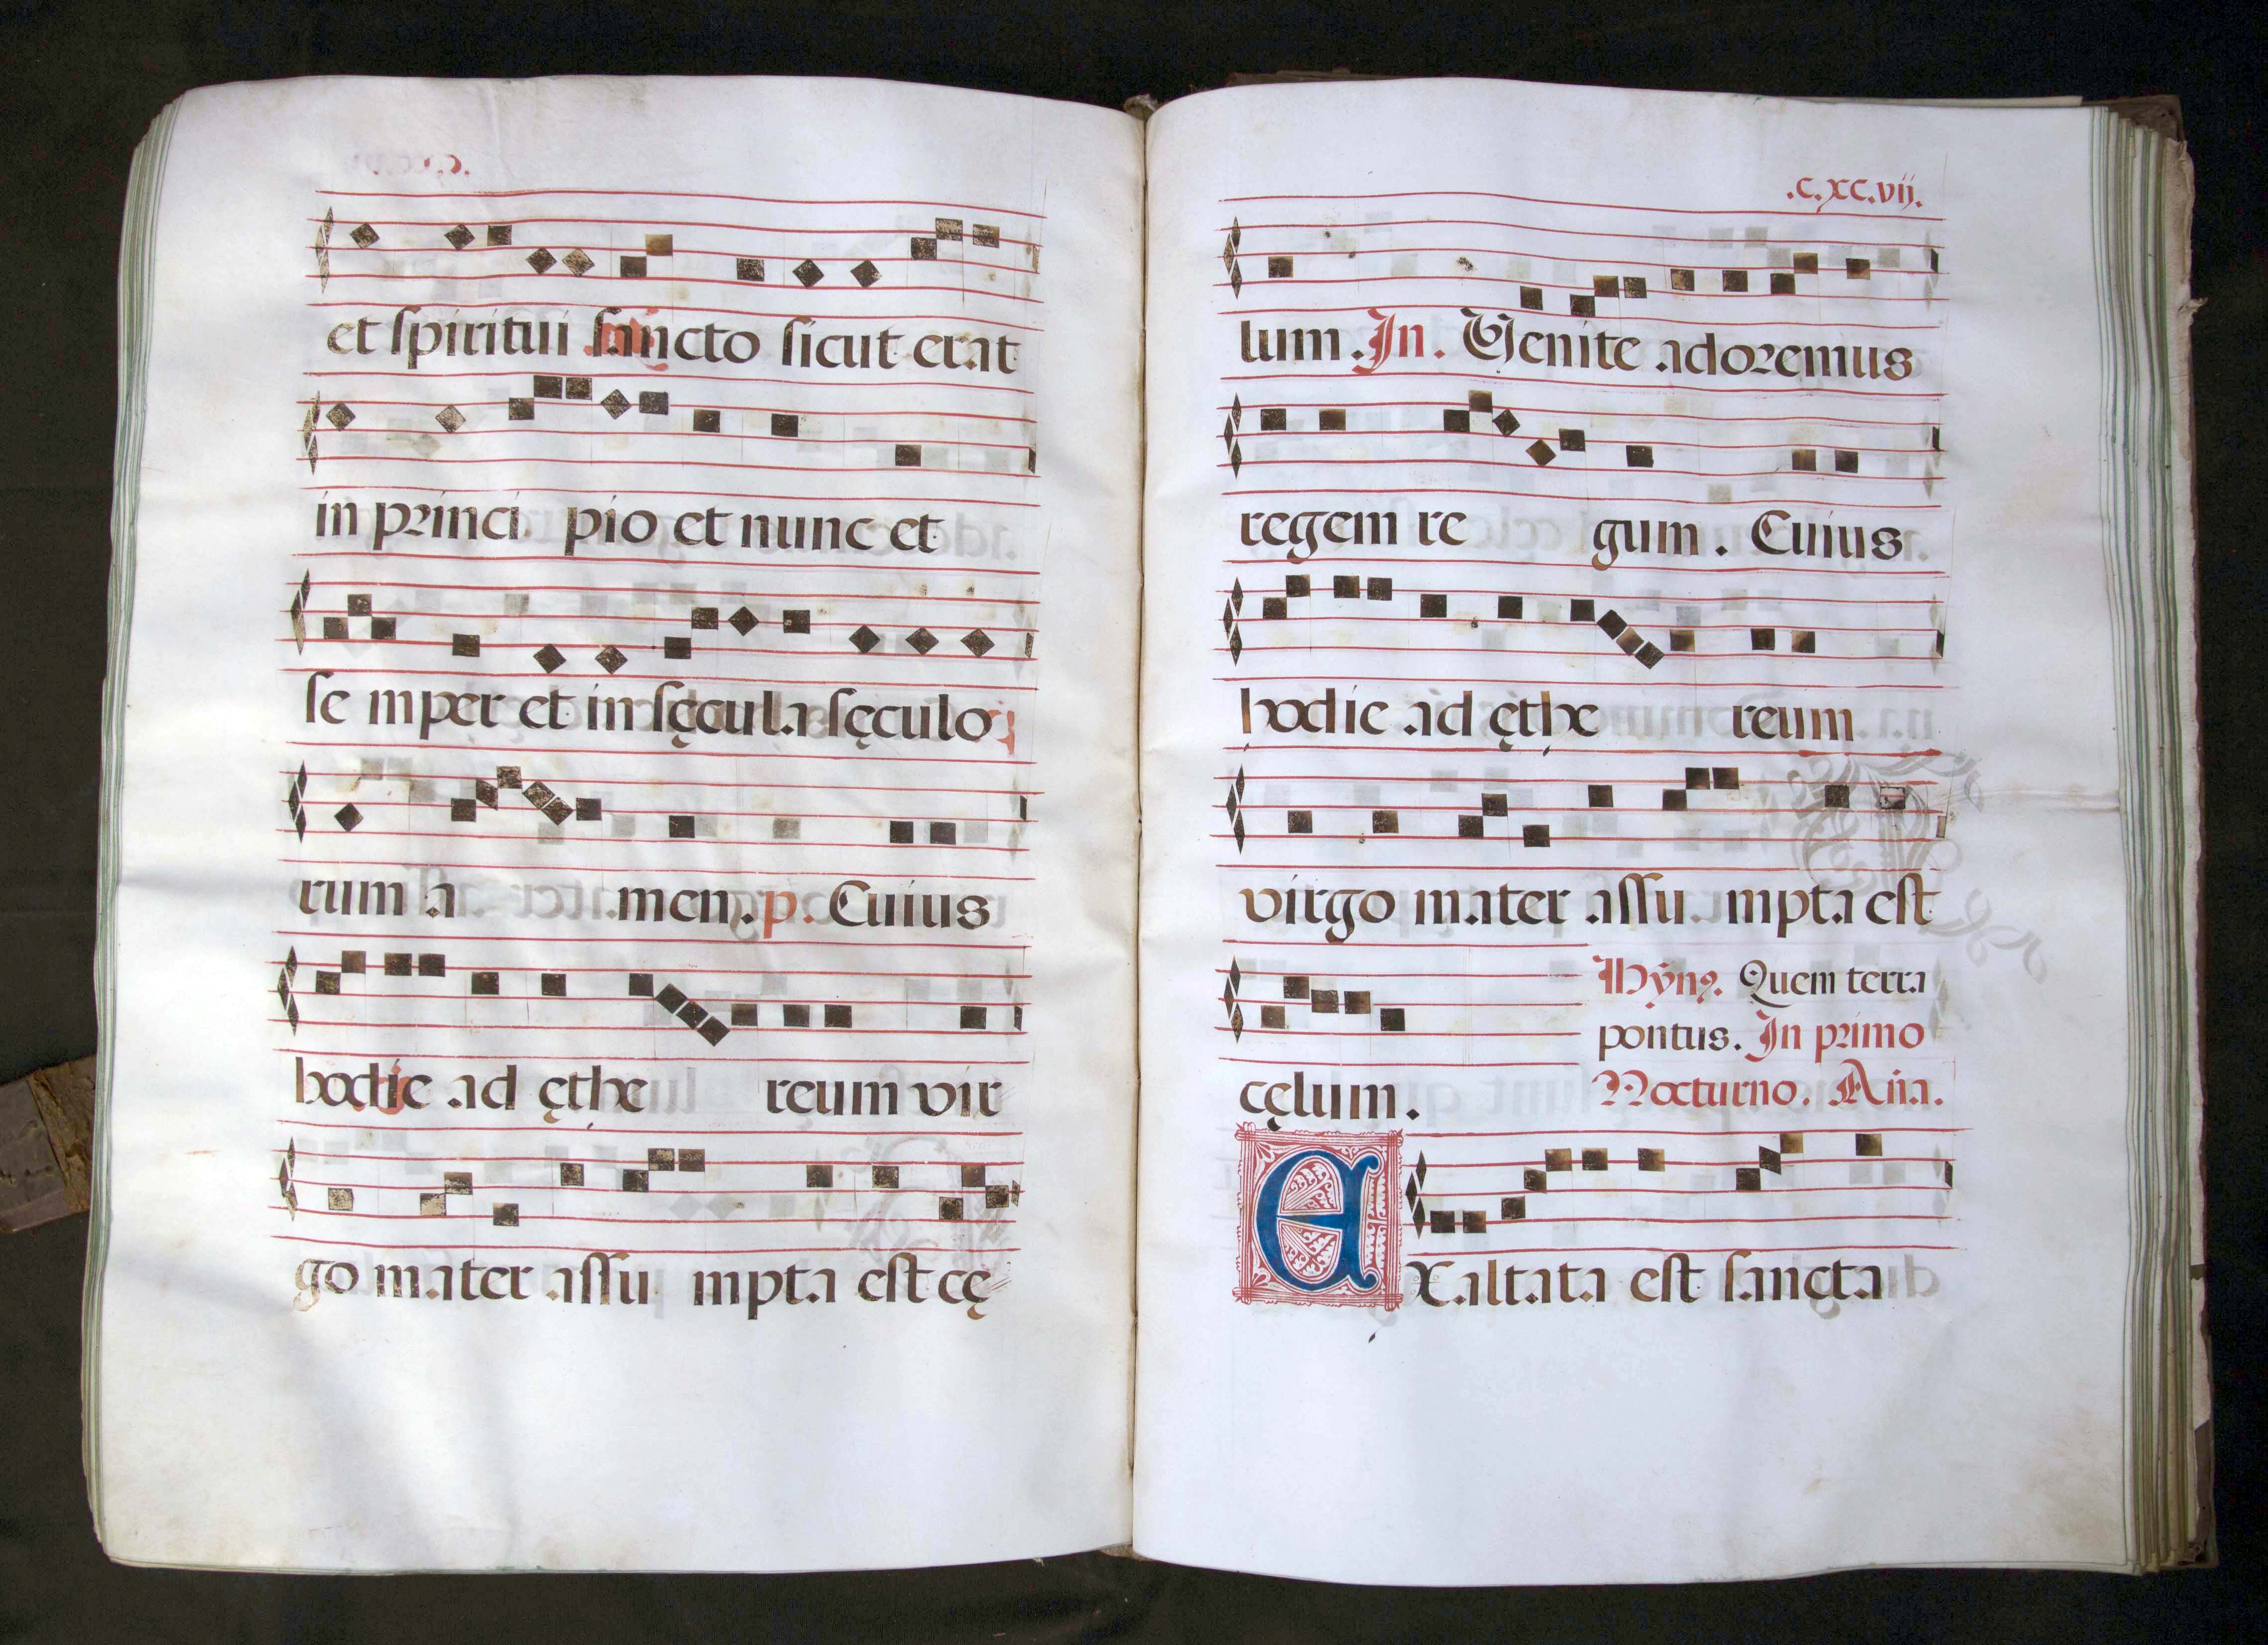 et spiritui sancto sicut erat
in princi pio et nunc et
se mper et in sęcula sęculo
rum a men. p. Cuius
hodie ad ęthe reum vir
go mater assu mpta est cę
.C.XC.vij.
lum. In. Venite adoremus
regem re gum. Cuius
hodie ad ęthe reum
virgo mater assu mpta est
cęlum.
Hỹnꝰ. Quem terra
pontus. In primo
Nocturno. Aña.
EXaltata est sancta